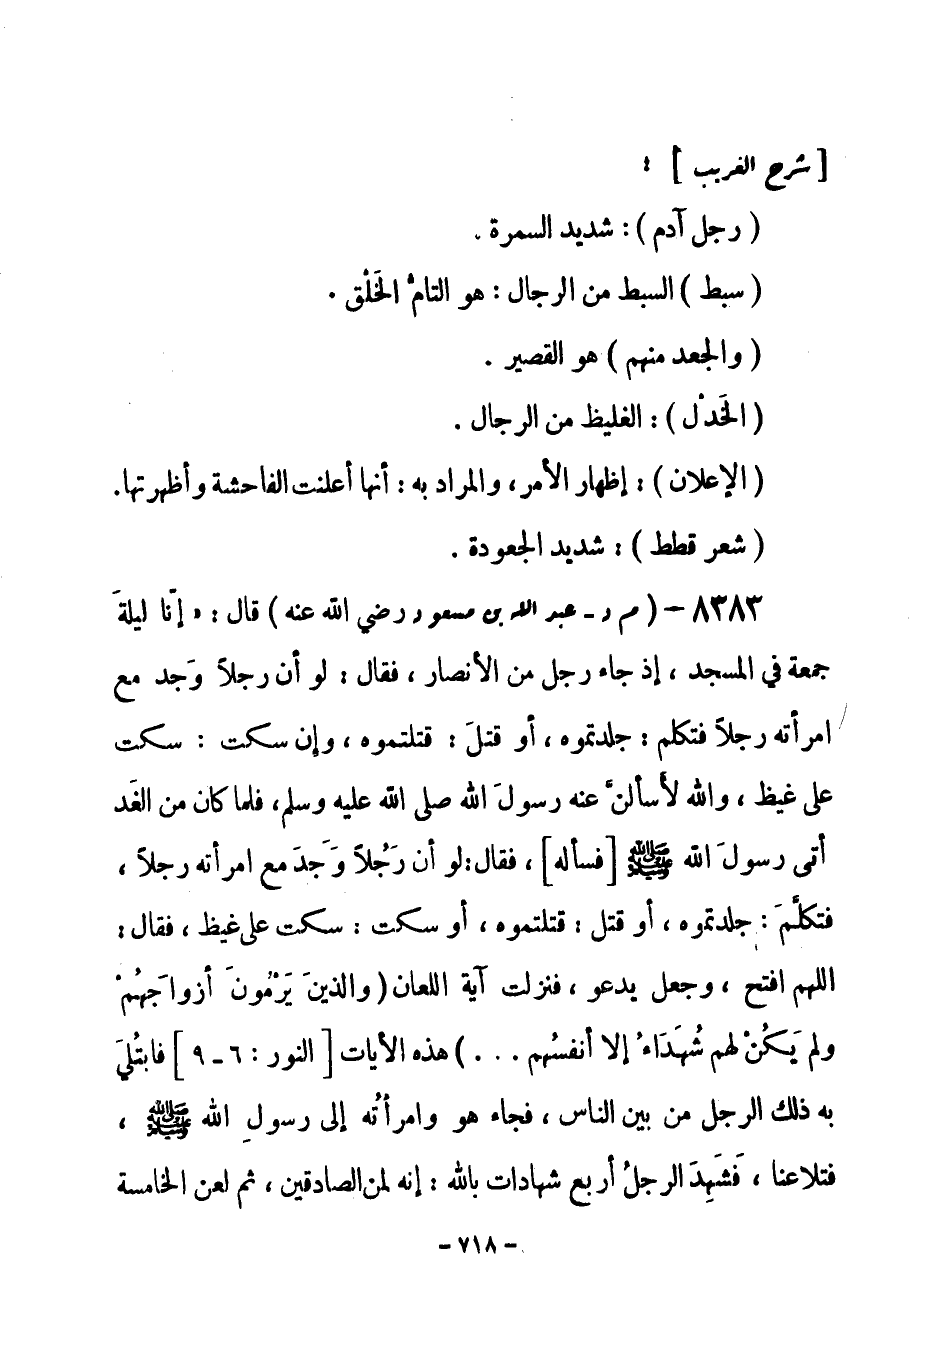 [ شرح الغريب ] :
( رجل آدم ) : شديد السمرة .
( سبط ) السبط من الرجال : هو التامُّ الخَلْق .
( والجعد منهم ) هو القصير .
( الخَدْل ) : الغليظ من الرجال .
( الإعلان ) : إظهار الأمر ، والمراد به : أنها أعلنت الفاحشة وأظهرتها .
( شعر قطط ) : شديد الجعودة .
٨٣٨٣ – ( م د – عبد الله بن مسعود رضي الله عنه ) قال : « إنّا ليلةَ
جمعة في المسجد ، إذ جاء رجل من الأنصار ، فقال : لو أن رجلاً وَجد مع
امرأته رجلاً فتكلم : جلدتموه ، أو قتلَ : قتلتموه ، وإن سكت : سكت
على غيظ ، والله لأسألنَّ عنه رسولَ الله صلى الله عليه وسلم ، فلما كان من الغَد
أتى رسولَ الله ﷺ [ فسأله ] ، فقال : لو أن رَجُلاً وَجَدَ مع امرأته رجلاً ،
فتكلَّمَ : جلدتموه ، أو قتل : قتلتموه ، أو سكت : سكت على غيظ ، فقال :
اللهم افتح ، وجعل يدعو ، فنزلت آية اللعان ( والذينَ يَرْمُونَ أزواجَهُمْ
ولم يَكُنْ لهم شُهَدَاءُ إلا أنفسُهم . . . ) هذه الآيات [ النور : ٦ - ٩ ] فابتُليَ
به ذلك الرجل من بين الناس ، فجاء هو وامرأتُه إلى رسولِ الله ﷺ ،
فتلاعنا ، فَشَهِدَ الرجلُ أربع شهادات بالله : إنه لمن الصادقين ، ثم لعن الخامسة
– ٧١٨ –